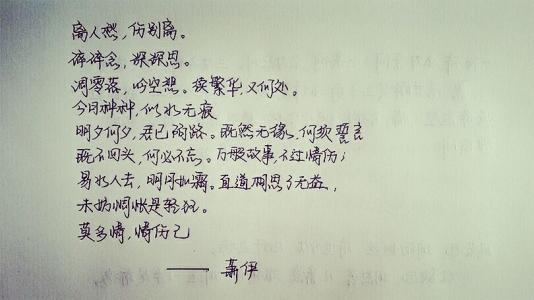 离人愁，伤别离。
碎碎念，深深思。
凋零落，吟空想。揽繁华又何处。
今月种种，似水无痕
明夕何夕，君已陌路。既然无缘，何须誓言
既不回头，何必不忘。万般故事，不过情伤；
易水人去，明月如霜。直道相思了无益，
未妨惆怅是轻狂。
莫多情，情伤己
—— 萧伊